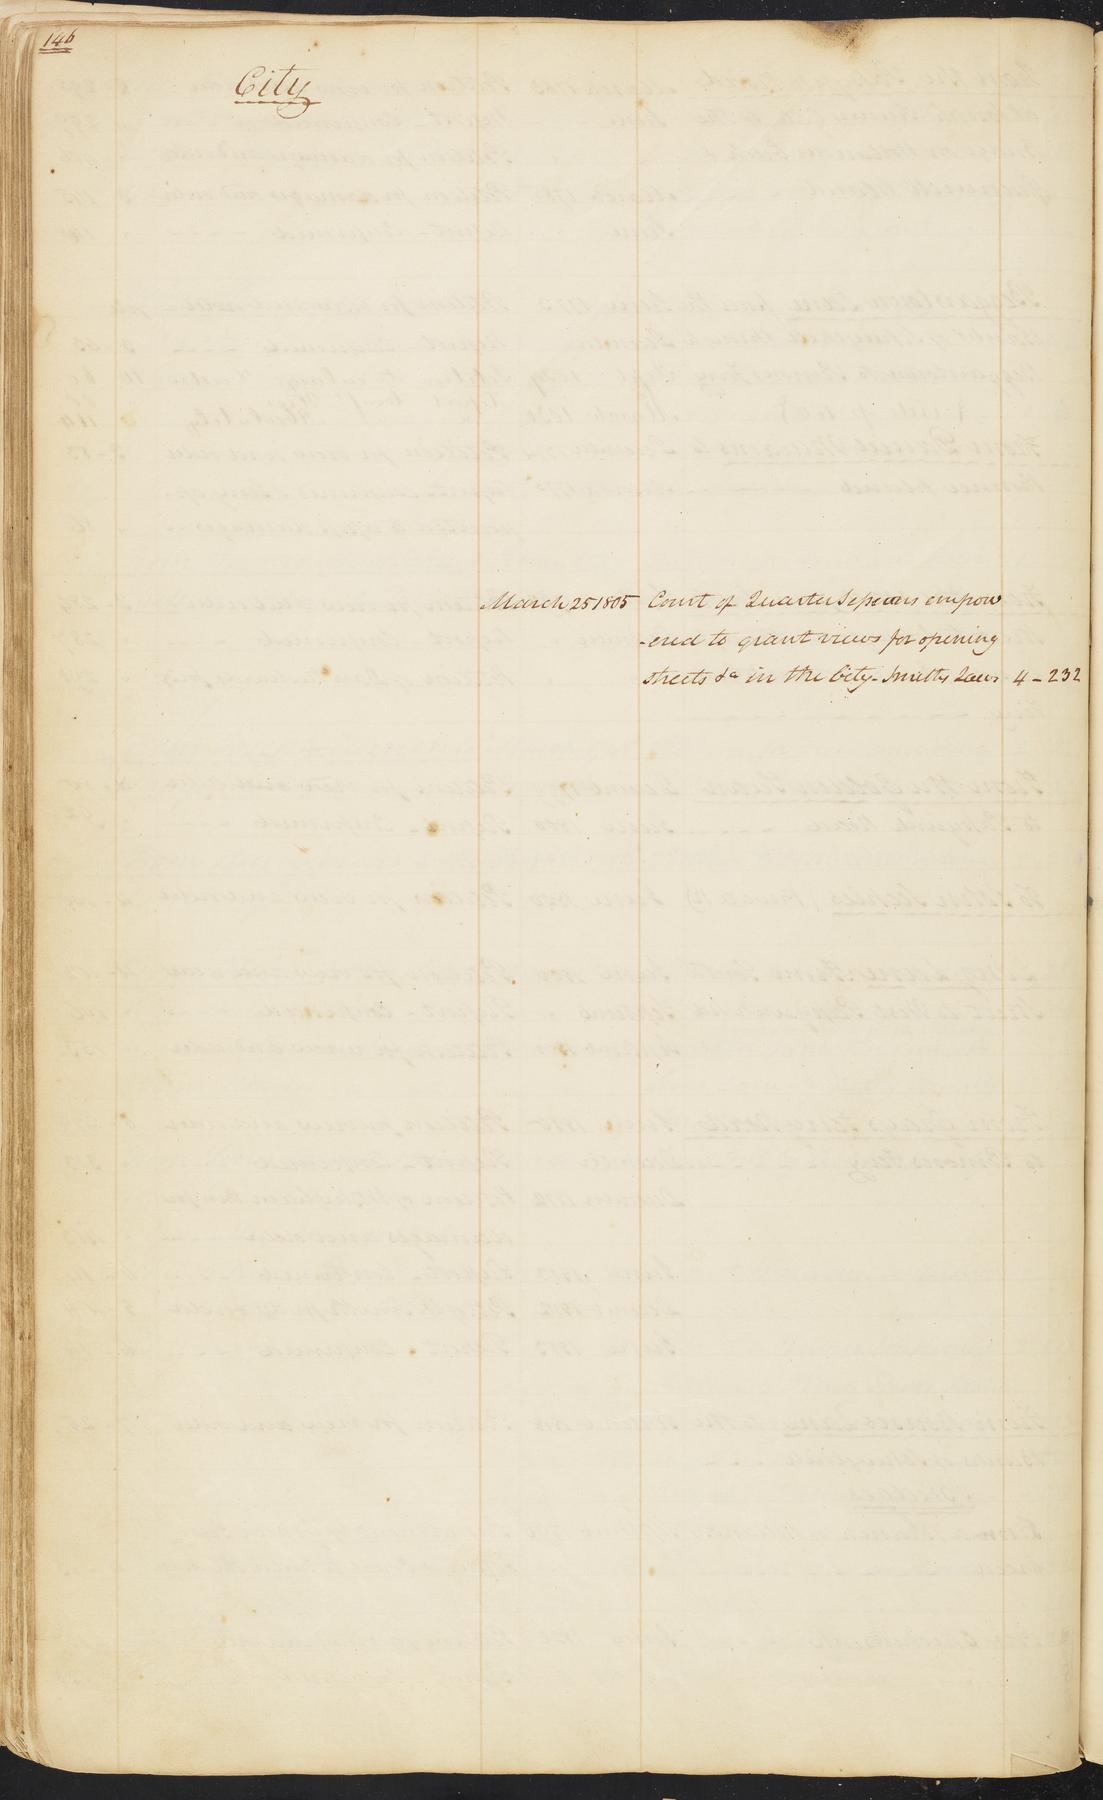 146
City
March 25 1805 Court of Quarter Sessions empow
-ered to grant views for opening
streets &c in the City - Smiths Laws 4 - 232